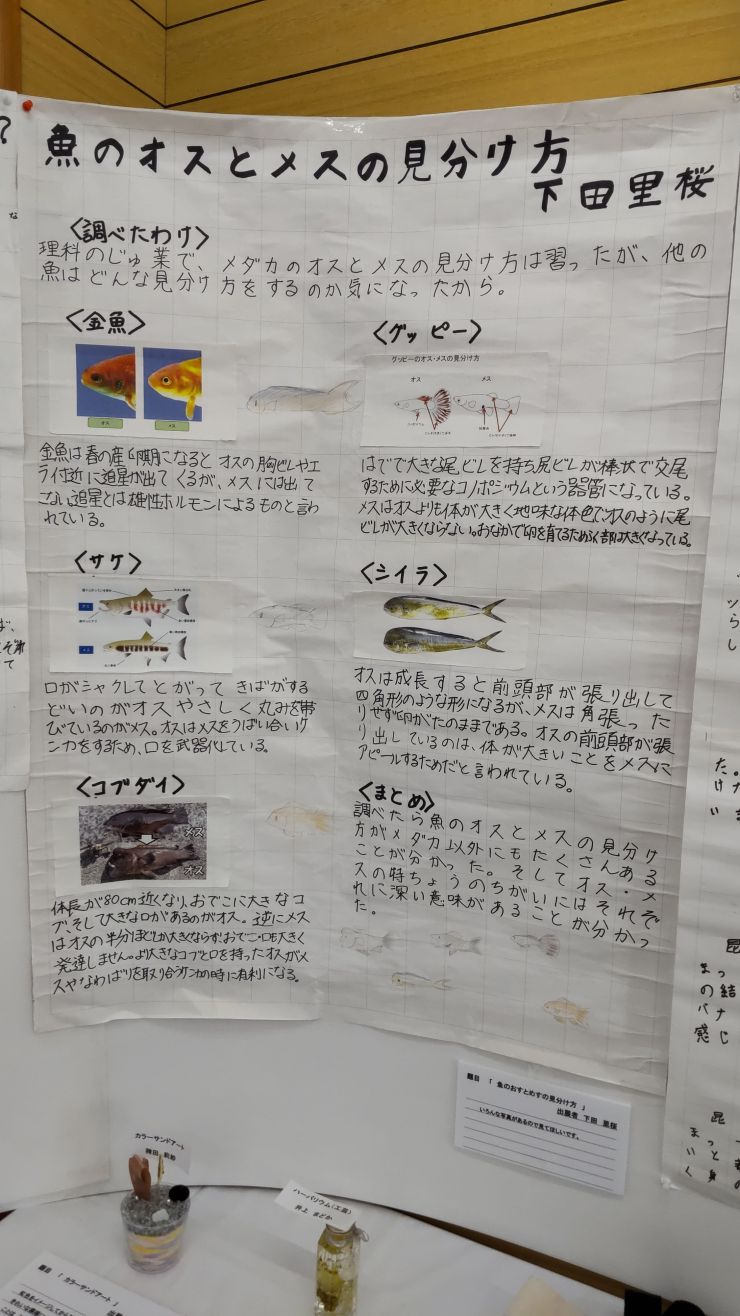 魚のオスとメスの見分け方
下田里桜
〈調べたわけ〉
理科のじゅ業で、メダカのオスとメスの見分け方は習ったが、他の
魚はどんな見分け方をするのか気になったから。
〈金魚〉
オス
メス
金魚は春の産卵期になるとオスの胸ビレやエ
ライ付近に追星が出てくるが、メスには出て
こない追星とは雄性ホルモンによるものと言わ
れている。
〈グッピー〉
グッピーのオス・メスの見分け方
オス
メス
はでで大きな尾ビレを持ち尻ビレが棒状で交尾
するために必要なコノポジウムという器管になっている。
メスはオスよりも体が大きく地味な体色でオスのように尾
ビレが大きくならない。おなかで卵を育てるためふく部は大きくなっている。
〈サケ〉
オス
メス
口がシャクレてとがってきばがする
どいのがオスやさしく丸みを帯
びているのがメス。オスはメスをうばい合いケ
ンカをするため、口を武器化している。
〈シイラ〉
オスは成長すると前頭部が張り出して
四角形のような形になるが、メスは角張った
りせず卵がたのままである。オスの前頭部が張
り出しているのは、体が大きいことをメスに
アピールするためだと言われている。
〈コブダイ〉
メス
オス
体長が80cm近くなり、おでこに大きなコ
ブ、そして大きな口があるのがオス。逆にメス
はオスの半分ほどしか大きくならず、おでこ・口も大きく
発達しません。より大きなコブと口を持ったオスがメ
スやなわばりを取り合うケンカの時に有利になる。
〈まとめ〉
調べたら魚のオスとメスの見分け
方がメダカ以外にもたくさんある
ことが分かった。そしてオス・メ
スの特ちょうのちがいにはそれぞ
れに深い意味があることが分かっ
た。
題目 「 魚のおすとめすの見分け方 」
出展者 下田 里桜
いろんな写真があるので見てほしいです。
カラーサンドアート
ハーバリウム(工芸)
井上 まどか
題目 「 カラーサンドアート 」